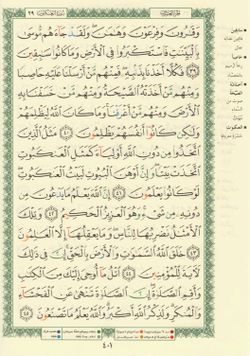 سورة العنكبوت ٢٩
وَقَٰرُونَ وَفِرْعَوْنَ وَهَٰمَٰنَ ۖ وَلَقَدْ جَآءَهُم مُّوسَىٰ
بِٱلْبَيِّنَٰتِ فَٱسْتَكْبَرُوا۟ فِى ٱلْأَرْضِ وَمَا كَانُوا۟ سَٰبِقِينَ
٣٩ فَكُلًّا أَخَذْنَا بِذَنۢبِهِۦ ۖ فَمِنْهُم مَّنْ أَرْسَلْنَا عَلَيْهِ حَاصِبًا
وَمِنْهُم مَّنْ أَخَذَتْهُ ٱلصَّيْحَةُ وَمِنْهُم مَّنْ خَسَفْنَا بِهِ
ٱلْأَرْضَ وَمِنْهُم مَّنْ أَغْرَقْنَا ۚ وَمَا كَانَ ٱللَّهُ لِيَظْلِمَهُمْ
وَلَٰكِن كَانُوٓا۟ أَنفُسَهُمْ يَظْلِمُونَ ٤٠ مَثَلُ ٱلَّذِينَ
ٱتَّخَذُوا۟ مِن دُونِ ٱللَّهِ أَوْلِيَآءَ كَمَثَلِ ٱلْعَنكَبُوتِ
ٱتَّخَذَتْ بَيْتًا ۖ وَإِنَّ أَوْهَنَ ٱلْبُيُوتِ لَبَيْتُ ٱلْعَنكَبُوتِ ۖ
لَوْ كَانُوا۟ يَعْلَمُونَ ٤١ إِنَّ ٱللَّهَ يَعْلَمُ مَا يَدْعُونَ مِن
دُونِهِۦ مِن شَىْءٍ ۚ وَهُوَ ٱلْعَزِيزُ ٱلْحَكِيمُ ٤٢ وَتِلْكَ
ٱلْأَمْثَٰلُ نَضْرِبُهَا لِلنَّاسِ ۖ وَمَا يَعْقِلُهَآ إِلَّا ٱلْعَٰلِمُونَ
٤٣ خَلَقَ ٱللَّهُ ٱلسَّمَٰوَٰتِ وَٱلْأَرْضَ بِٱلْحَقِّ ۚ إِنَّ فِى ذَٰلِكَ
لَءَايَةً لِّلْمُؤْمِنِينَ ٤٤ ٱتْلُ مَآ أُوحِىَ إِلَيْكَ مِنَ ٱلْكِتَٰبِ
وَأَقِمِ ٱلصَّلَوٰةَ ۖ إِنَّ ٱلصَّلَوٰةَ تَنْهَىٰ عَنِ ٱلْفَحْشَآءِ
وَٱلْمُنكَرِ ۗ وَلَذِكْرُ ٱللَّهِ أَكْبَرُ ۗ وَٱللَّهُ يَعْلَمُ مَا تَصْنَعُونَ ٤٥
٤٠١